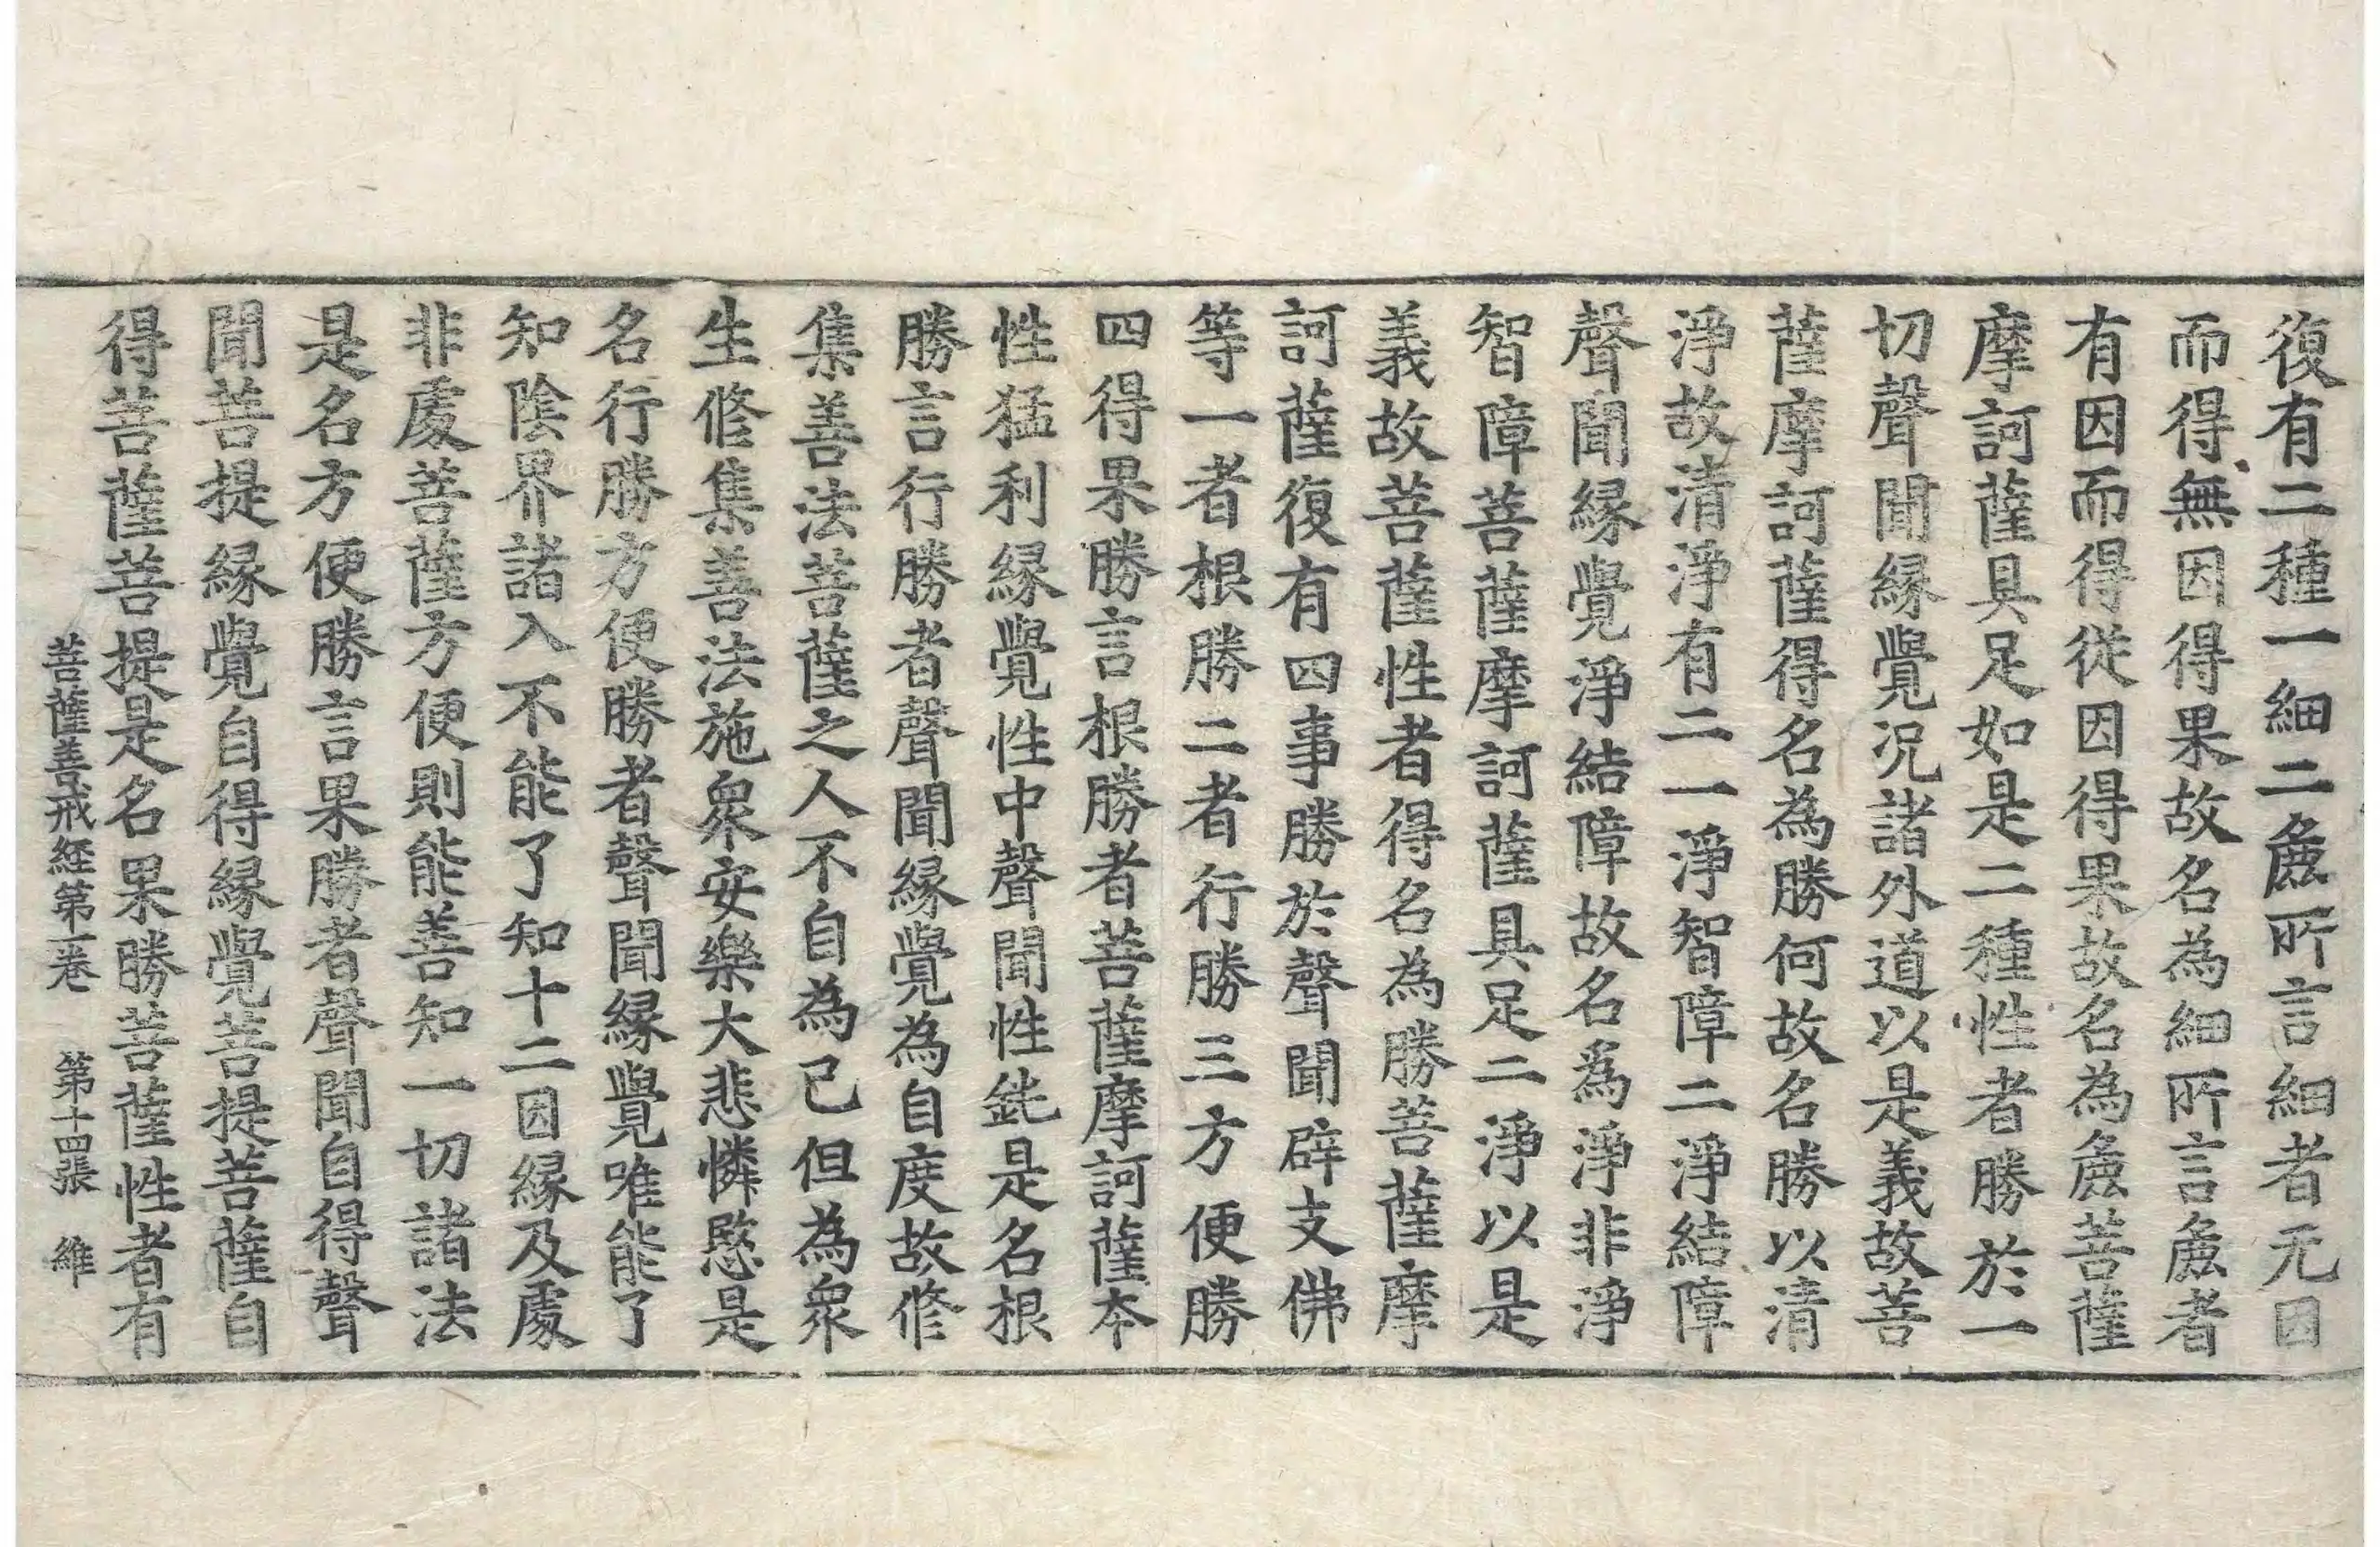 復有二種一細二麁所言細者无因
而得無因得果故名為細所言麁者
有因而得從因得果故名為麁菩薩
摩訶薩具足如是二種性者勝於一
切聲聞縁覺况諸外道以是義故菩
薩摩訶薩得名為勝何故名勝以清
淨故清淨有二一淨智障二淨結障
聲聞縁覺淨結障故名爲淨非淨
智障菩薩摩訶薩具足二淨以是
義故菩薩性者得名為勝菩薩摩
訶薩復有四事勝於聲聞辟支佛
等一者根勝二者行勝三方便勝
四得果勝言根勝者菩薩摩訶薩本
性猛利縁覺性中聲聞性鈍是名根
勝言行勝者聲聞縁覺為自度故修
集善法菩薩之人不自為己但為衆
生修集善法施衆安樂大悲憐愍是
名行勝方便勝者聲聞縁覺唯能了
知陰界諸入不能了知十二因縁及處
非處菩薩方便則能善知一切諸法
是名方便勝言果勝者聲聞自得聲
聞菩提縁覺自得縁覺菩提菩薩自
得菩薩菩提是名果勝菩薩性者有
菩薩善戒経第一卷　第十四張　維